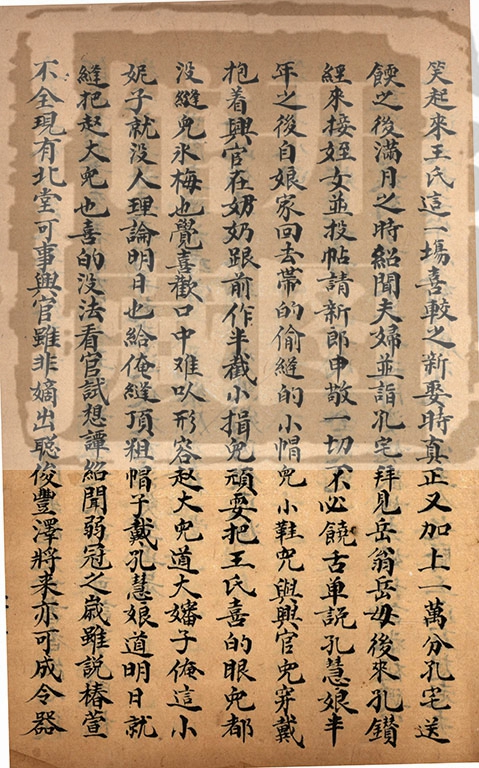 笑起来王氏這一場喜較之新娶時真正又加上一萬分孔宅送
餪之後滿月之時紹聞夫婦並詣孔宅拜見岳翁岳母後來孔鑽
經來接姪女並投帖請新郎申敬一切不必饒舌单説孔慧娘半
年之後自娘家回去帯的偷縫的小帽兒小鞋兒與興官兒穿戴
抱着興官在奶奶跟前作半截小揖兒頑耍把王氏喜的眼兒都
没縫兒氷梅也覺喜歡口中难以形容赵大兒道大嬸子俺這小
妮子就没人理論明日也給俺縫頂狙帽子戴孔慧娘道明日就
縫把赵大兒也喜的没法看官試想譚紹聞弱冠之歲雖説椿萱
不全現有北堂可事興官雖非嫡出聡俊豐澤將来亦可成令器